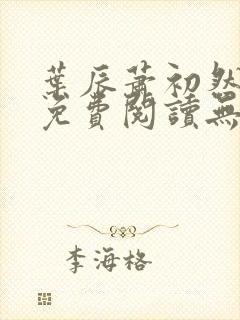 葉辰蕭初然
免費閱讀無
李海格